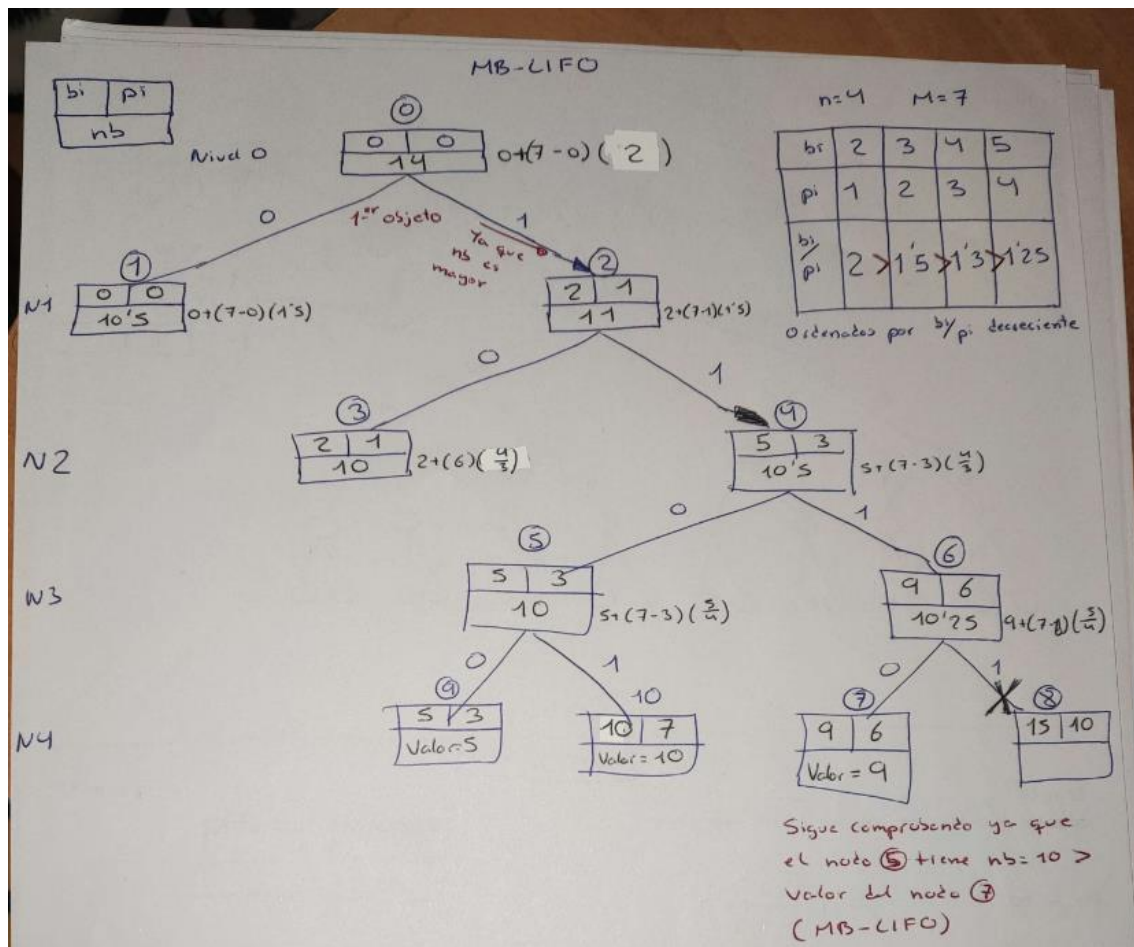 MB-LIFO
bi pi
nb
n=4 M=7
bi 2 3 4 5
pi 1 2 3 4
bi/pi 2 > 1'5 > 1'3 > 1'25
Ordenados por bi/pi decreciente
Nivel 0
0
0 0
14
0+(7-0)(2)
0
1er objeto
1
Ya que
nb es
mayor
N1
1
0 0
10'5
0+(7-0)(1'5)
2
2 1
11
2+(7-1)(1'5)
0
1
N2
3
2 1
10
2+(6)(4/3)
4
5 3
10'5
5+(7-3)(4/3)
0
1
N3
5
5 3
10
5+(7-3)(5/4)
6
9 6
10'25
9+(7-6)(5/4)
0
1
0
1
N4
9
5 3
Valor=5
10
10 7
Valor = 10
7
9 6
Valor = 9
8
15 10
Sigue comprobando ya que
el nodo 5 tiene nb=10 >
valor del nodo 7
(MB-LIFO)